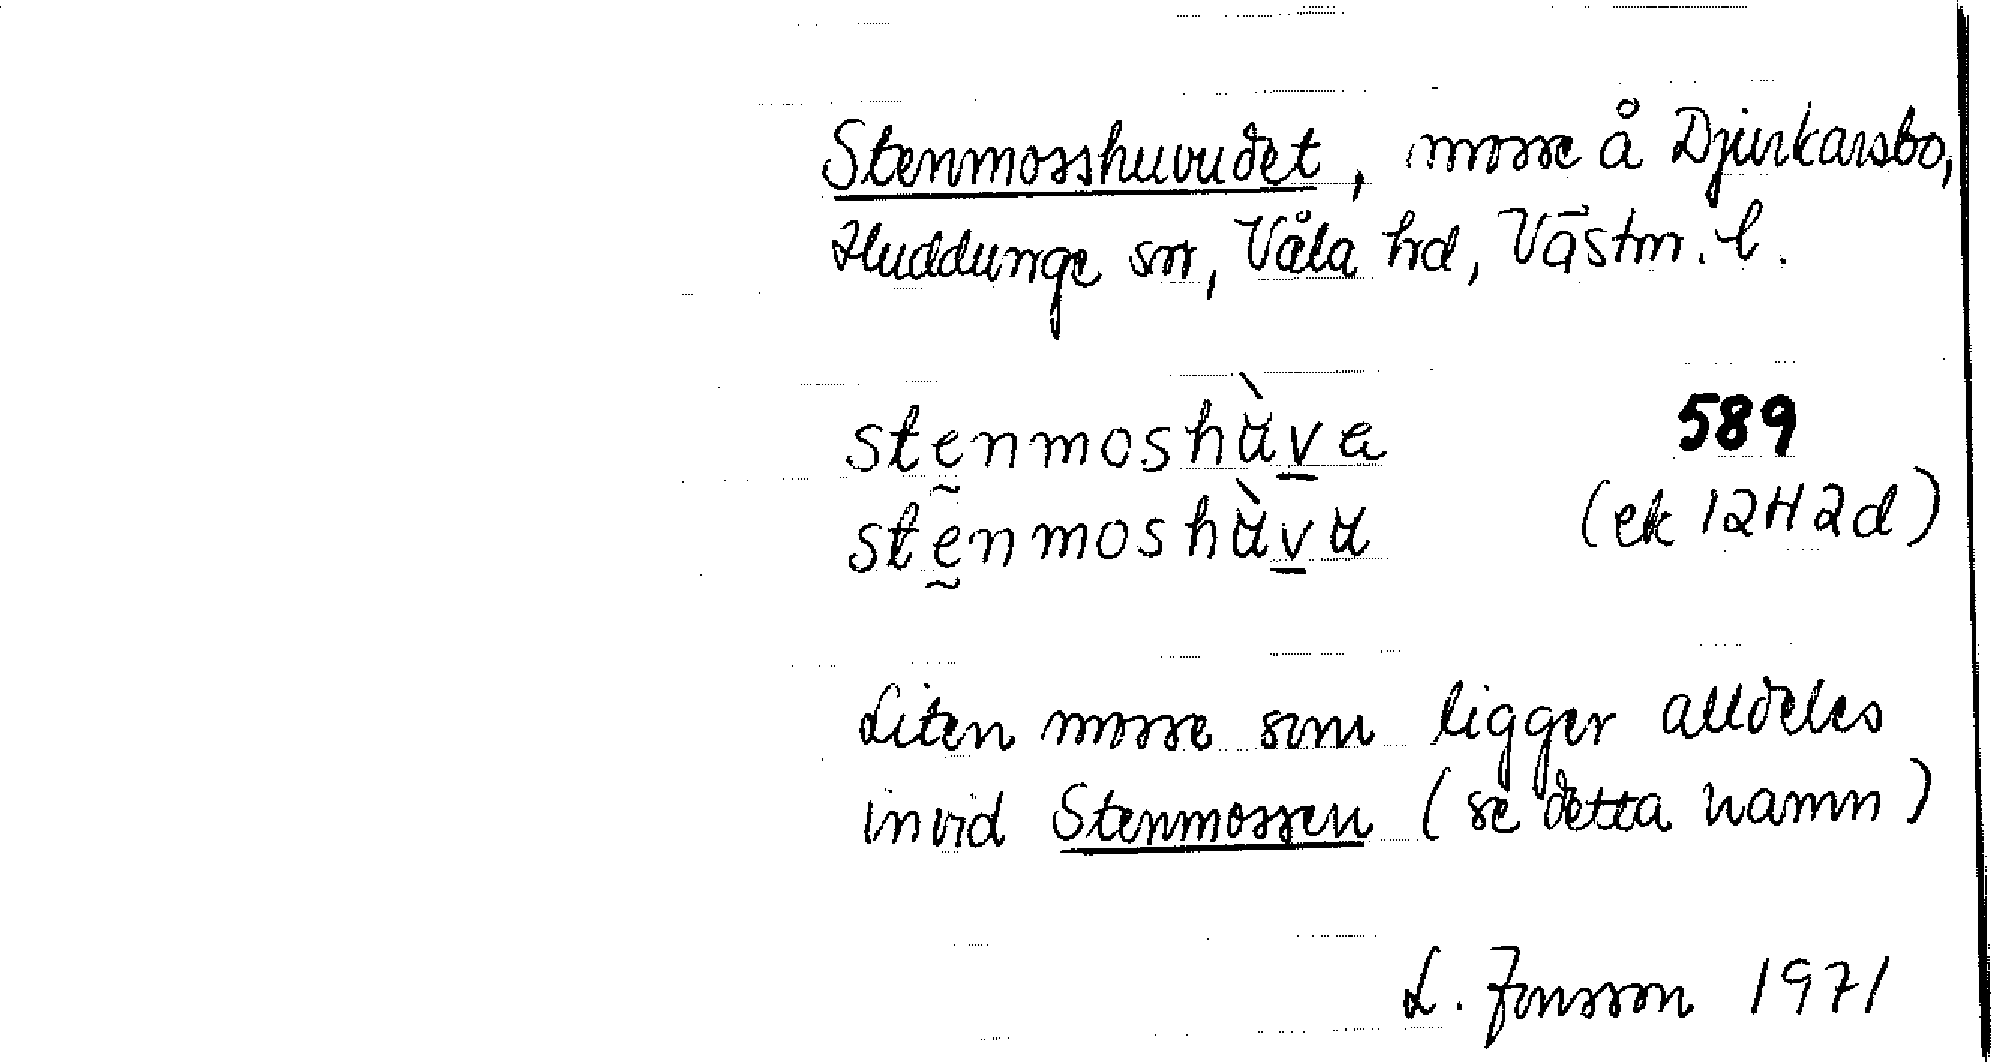 Stenmosshuvudet, mosse å Djurkarsbo,
Huddunge sn, Våla hd, Västm. l.
stenmoshùva 589
stenmoshùvu (ek 12H2d)
Liten mosse som ligger alldeles
invid Stenmossen (se detta namn)
L. Jonsson 1971